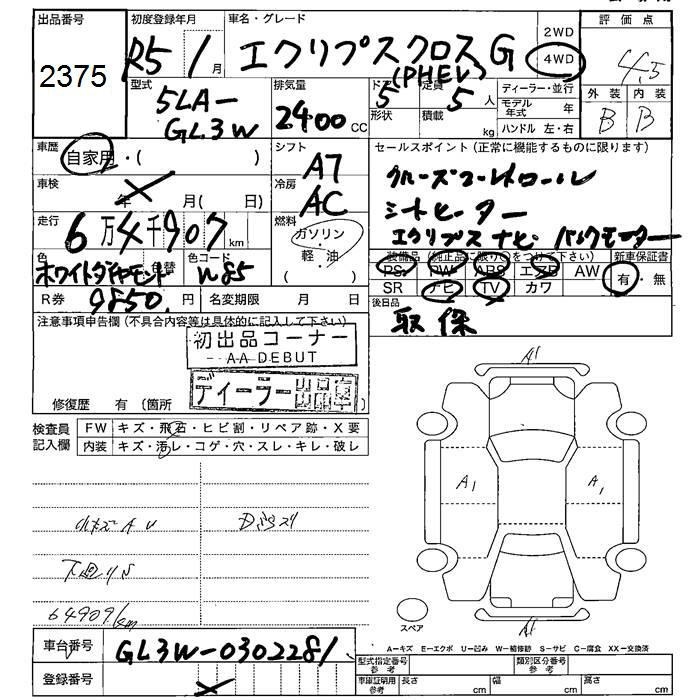 出品番号 初度登録年月 車名・グレード 2WD 評価点
2375 R5 / 1月 エクリプスクロス G 4WD 4.5
(PHEV)
型式 排気量 ドア 定員 ディーラー・並行 外装 内装
5LA- 2400 CC 5 5 人 モデル年式 年 B B
GL3W 形状 積載 kg ハンドル 左・右
車歴 シフト セールスポイント(正常に機能するものに限ります)
自家用・( ) A7 クルーズコントロール
車検 冷房 シートヒーター
年 月( 日) AC エクリプスナビ バックモーター
走行 燃料
6万4千907km ガソリン・軽・油
色 色替 色コード 装備品(純正品に限り○をつけて下さい) 新車保証書
ホワイトダイヤモンド W85 PS PW ABS エアB AW 有・無
R券 9850円 名変期限 月 日 SR ナビ TV カワ
注意事項申告欄(不具合内容等は具体的に記入して下さい) 後日品
取 保
初出品コーナー
-AA DEBUT
ディーラー出品車
修復歴 有 (箇所
検査員 FW キズ・飛石・ヒビ割・リペア跡・X要
記入欄 内装 キズ・汚レ・コゲ・穴・スレ・キレ・破レ
A1
A1 A1
小キズAU
下廻りS
64909km
A1
スペア
A-キズ E-エクボ U-凹み W-補修跡 S-サビ C-腐食 XX-交換済
車台番号 GL3W-0302281
登録番号
型式指定番号 参考 類別区分番号 参考
車庫証明用 参考 長さ cm 幅 cm 高さ cm